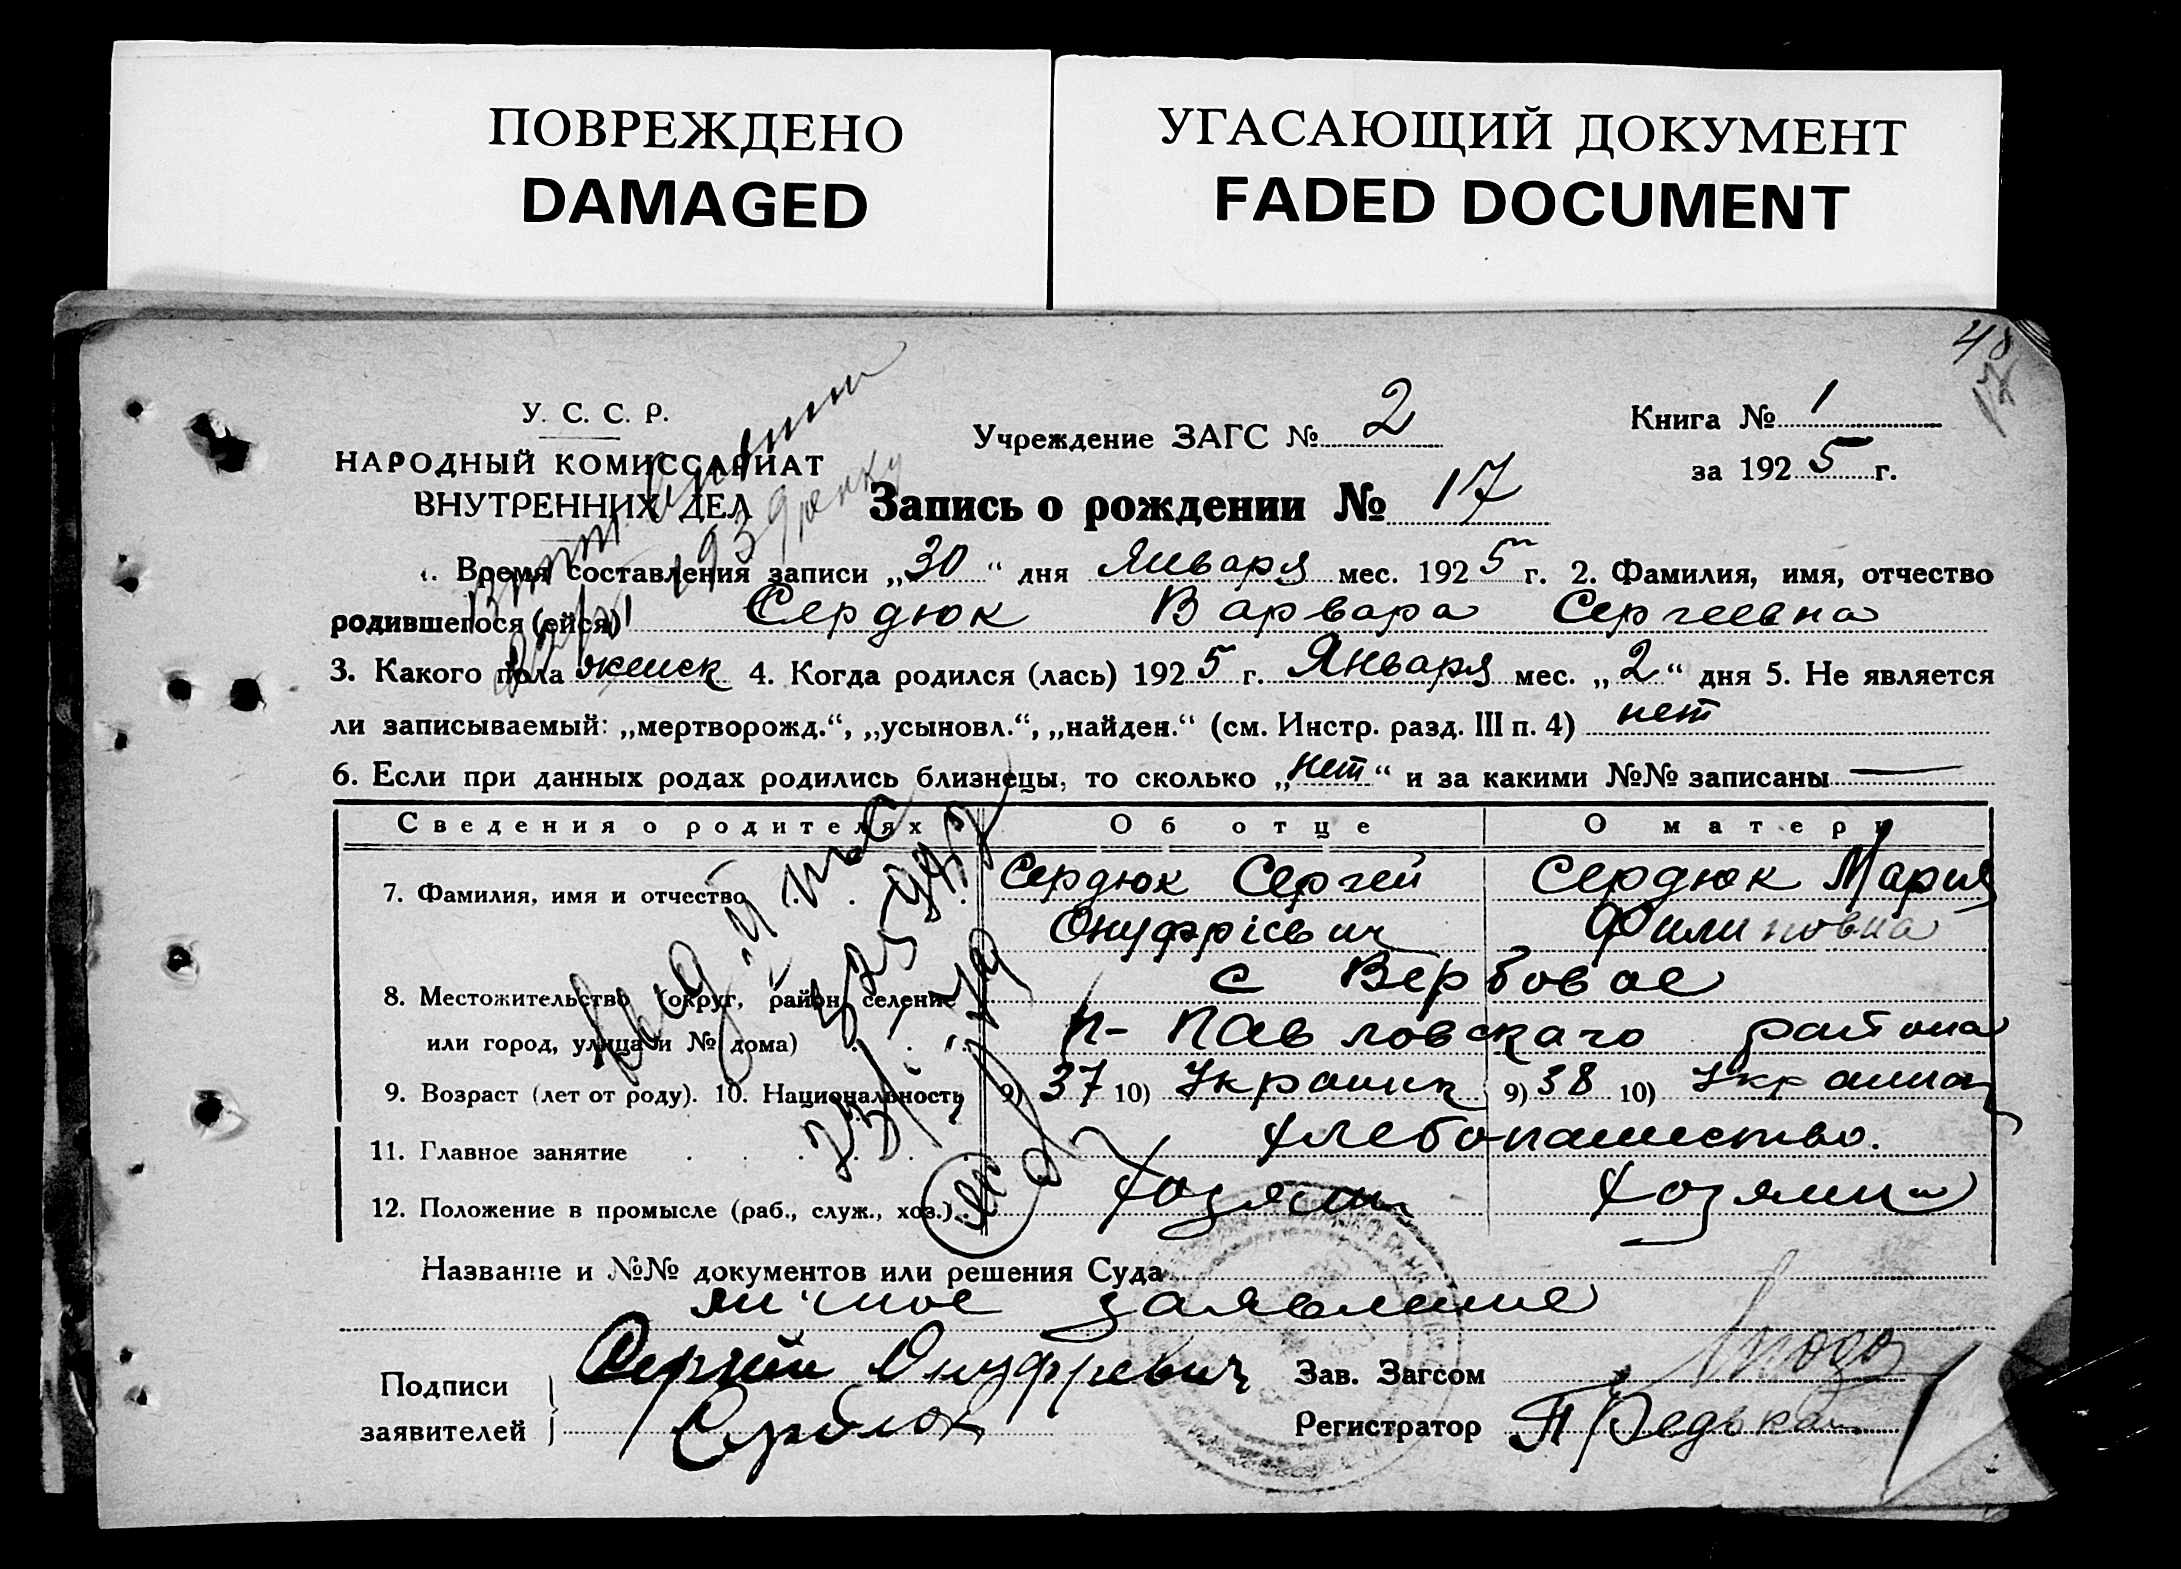 ПОВРЕЖДЕНО
DAMAGED
УГАСАЮЩИЙ ДОКУМЕНТ
FADED DOCUMENT
48
17
У. С. С. Р.
НАРОДНЫЙ КОМИССАРИАТ
ВНУТРЕННИХ ДЕЛ
Учреждение ЗАГС № 2
Книга № 1
за 1925 г.
Запись о рождении № 17
1. Время составления записи „30“ дня Января мес. 1925 г. 2. Фамилия, имя, отчество
родившегося (ейся) Сердюк Варвара Сергеевна
3. Какого пола женск 4. Когда родился (лась) 1925 г. Января мес. „2“ дня 5. Не является
ли записываемый: „мертворожд.“, „усыновл.“, „найден.“ (см. Инстр. разд. III п. 4) нет
6. Если при данных родах родились близнецы, то сколько „нет“ и за какими №№ записаны —
Сведения о родителях Об отце О матери
7. Фамилия, имя и отчество Сердюк Сергей Сердюк Мария
Онуфріевич Филиповна
8. Местожительство (округ, район, селение с Вербовое
или город, улица и № дома) П-Павловскаго района
9. Возраст (лет от роду). 10. Национальность 9) 37 10) Украинец 9) 38 10) Украинка
11. Главное занятие Хлебопашество.
12. Положение в промысле (раб., служ., хоз.) Хозяин Хозяйка
Название и №№ документов или решения Суда
личное заявление
Подписи Сергей Онуфревич Зав. Загсом
заявителей Сердюк Регистратор П Редька